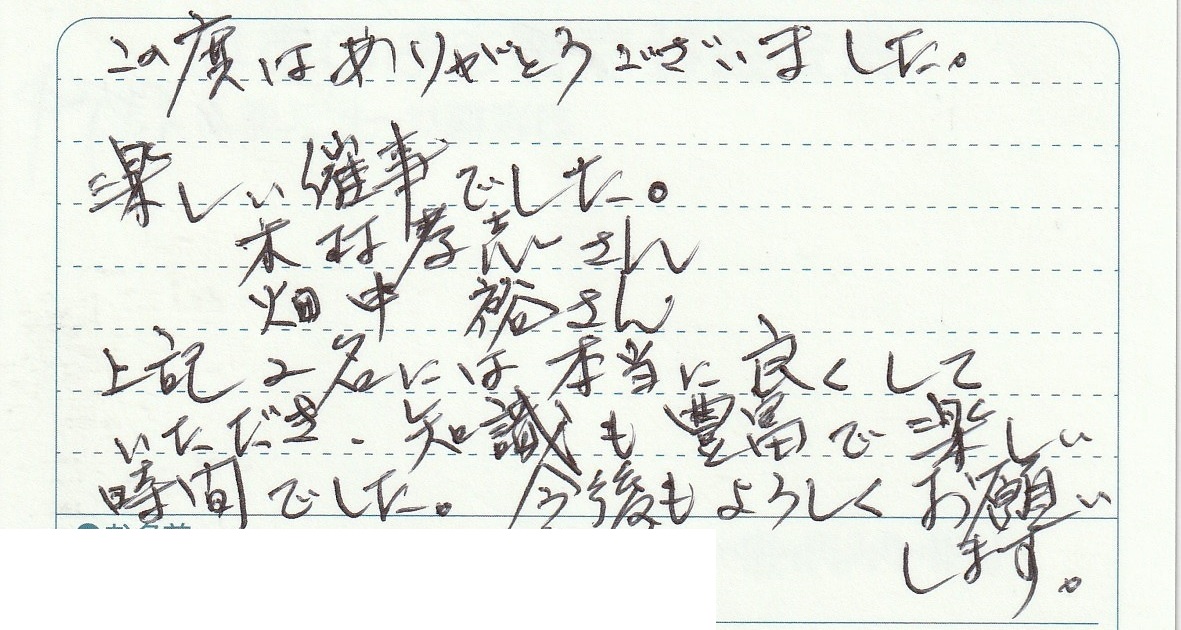 この度はありがとうございました。
楽しい催事でした。
木村孝志さん
畑中 裕さん
上記2名には本当に良くして
いただき、知識も豊富で楽しい
時間でした。今後もよろしくお願い
します。